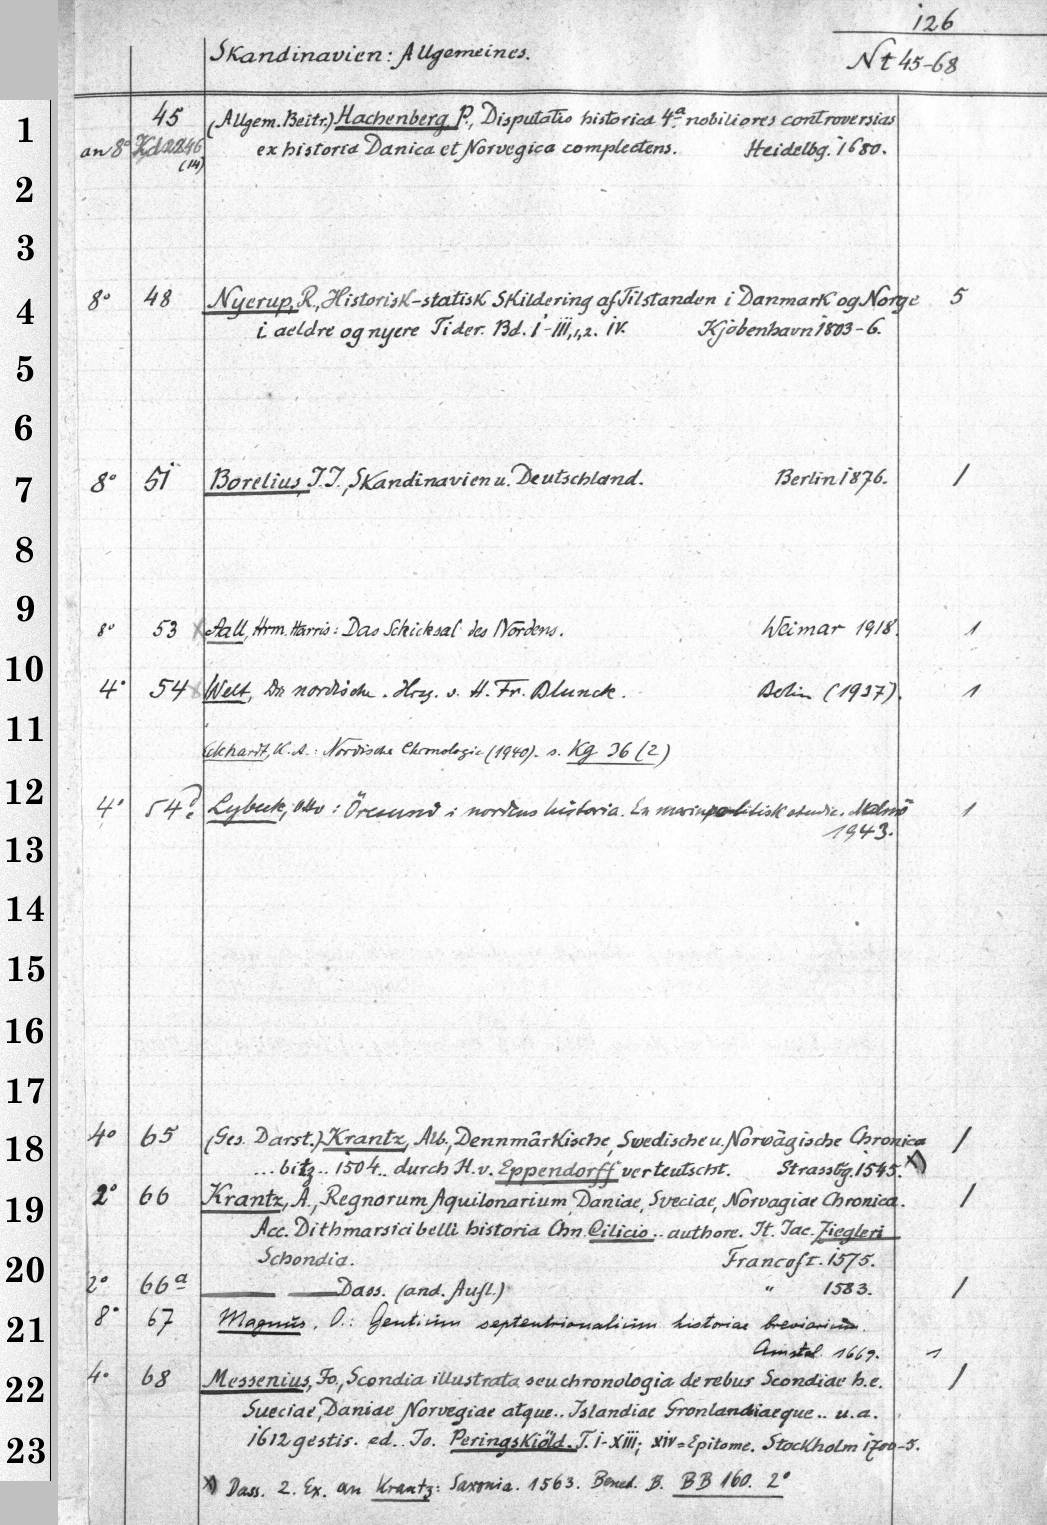 126
Skandinavien: Allgemeines. Nt 45-68
1 45 (Allgem. Beitr.) Hachenberg P., Disputatio historica 4.a nobiliores controversias
an 8° Kd 2246 (14) ex historia Danica et Norvegica complectens. Heidelbg. 1680.
2
3
4 8° 48 Nyerup, R., Historisk-statisk Skildering af Tilstanden i Danmark og Norge 5
i aeldre og nyere Tider. Bd. I-III,1,2. IV. Kjöbenhavn 1803-6.
5
6
7 8° 51 Borelius, J. J., Skandinavien u. Deutschland. Berlin 1876. 1
8
9 8° 53 Aall, Hrm. Harris: Das Schicksal des Nordens. Weimar 1918. 1
10 4° 54 Welt, Die nordische. Hrsg. v. H. Fr. Blunck. Berlin (1937). 1
11 Eckhardt, K. A.: Nordische Chronologie (1940). s. Kg 36 (2)
12 4° 54 Lybeck, Otto: Öresund i nordens historia. En marinpolitisk studie. Malmö 1
13 1943.
14
15
16
17
18 4° 65 (Ges. Darst.) Krantz, Alb., Dennmärkische, Swedische u. Norwägische Chronica 1
... bitz.. 1504.. durch H. v. Eppendorff verteutscht. Strassbg. 1545. x)
19 2° 66 Krantz, A., Regnorum Aquilonarium, Daniae, Sveciae, Norvagiae Chronica. 1
Acc. Dithmarsici belli historia Chn. Cilicio.. authore. It. Jac. Ziegleri
20 Schondia. Francoft. 1575.
2° 66a — — Dass. (and. Aufl.) " 1583. 1
21 8° 67 Magnus, O.: Gentium septentrionalium historiae breviarium.
Amstel. 1669. 1
22 4° 68 Messenius, Jo., Scondia illustrata seu chronologia de rebus Scondiae h.e. 1
Sueciae, Daniae Norvegiae atque.. Islandiae Gronlandiaeque.. u.a.
23 1612 gestis. ed. Jo. Peringskiöld. T. I-XIII; XIV=Epitome. Stockholm 1700-5.
x) Dass. 2. Ex. an Krantz: Saxonia. 1563. Bened. B. BB 160. 2°